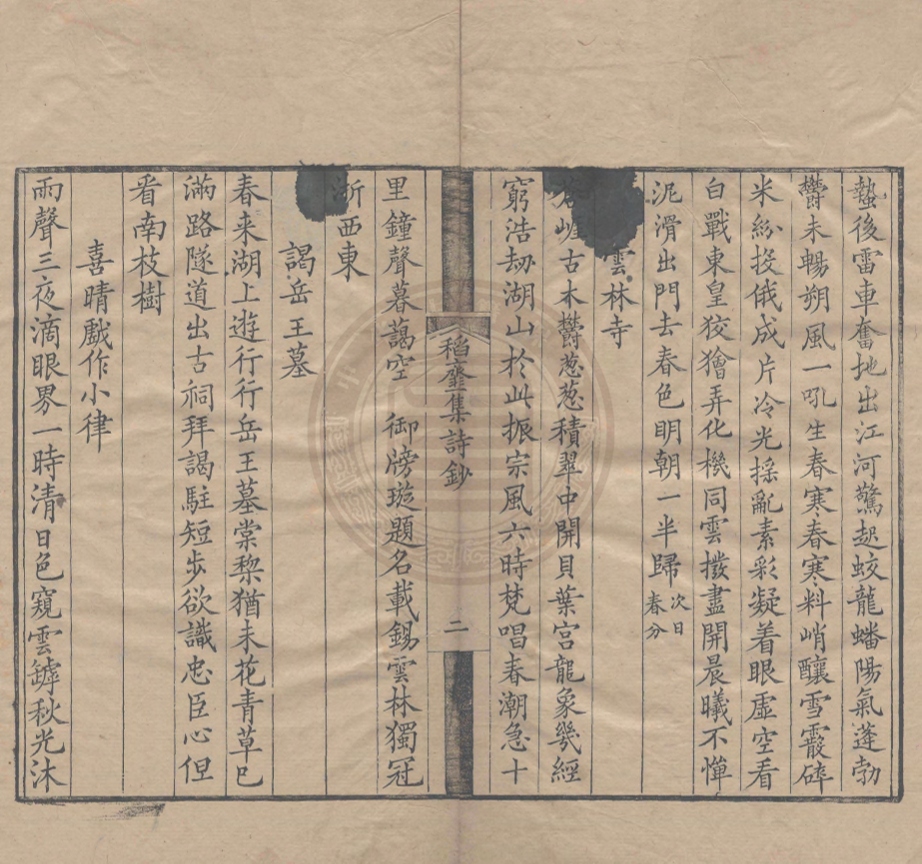 蟄後雷車奮地出江河驚起蛟龍蟠陽氣蓬勃
鬱未暢朔風一吼生春寒春寒料峭釀雪霰碎
米紛投俄成片冷光揺亂素彩凝着眼虛空看
白戰東皇狡獪弄化機同雲撥盡開晨曦不憚
泥滑出門去春色明朝一半歸次日春分
雲林寺
嵯古木鬱葱葱積翠中開貝葉宮龍象幾經
窮浩劫湖山於此振宗風六時梵唱春潮急十
稻齋集詩鈔 二
里鐘聲暮藹空 御牓璇題名載錫雲林獨冠
浙西東
謁岳王墓
春来湖上遊行行岳王墓棠棃猶未花青草已
滿路隧道出古祠拜謁駐短步欲識忠臣心但
看南枝樹
喜晴戲作小律
雨聲三夜滴眼界一時清日色窺雲罅秋光沐